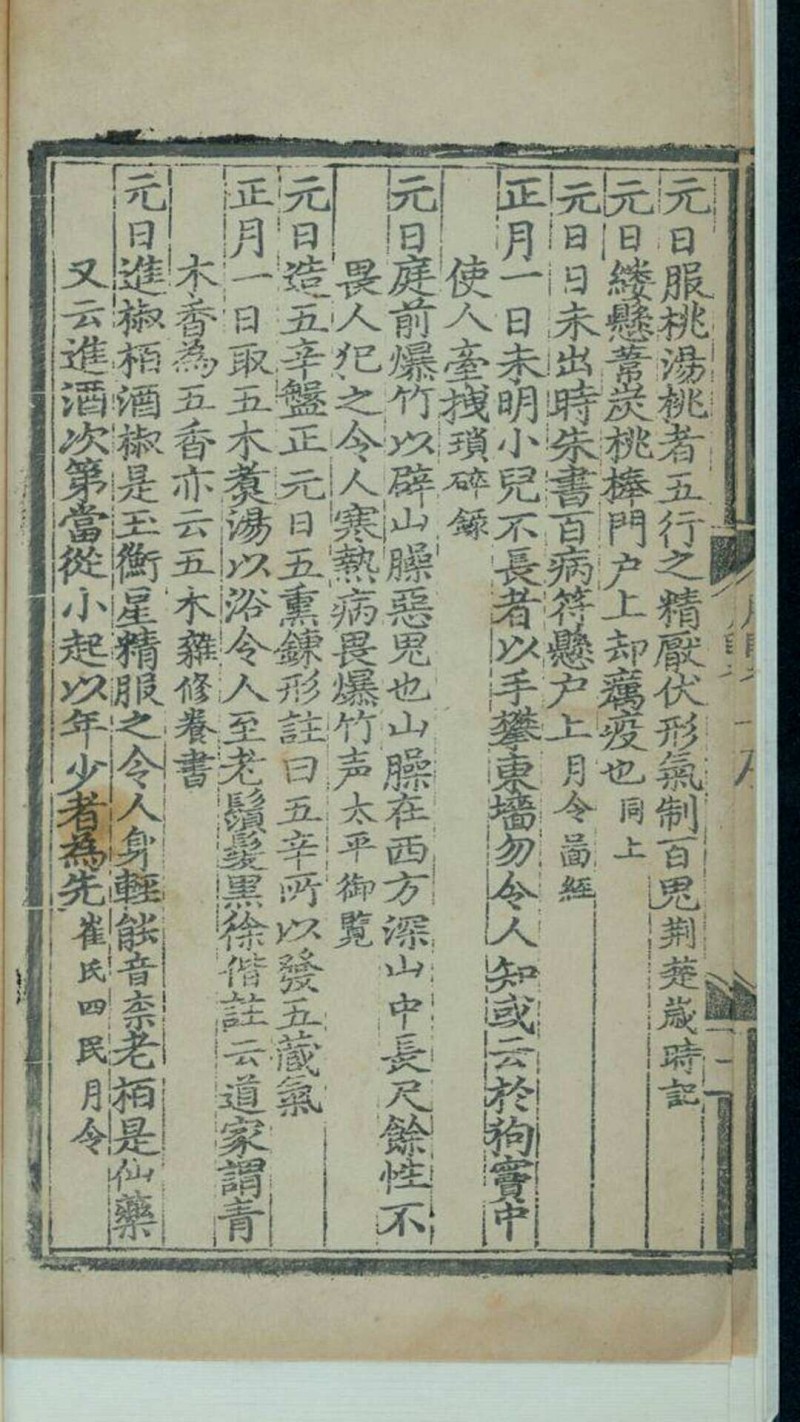 元日服桃湯桃者五行之精厭伏形氣制百鬼荆楚歲時記
元日縷懸葦炭桃棒門户上却癘疫也同上
元日日未出時朱書百病符懸户上月令啚經
正月一日未明小兒不長者以手攀東墻勿令人知或云於狗竇中
使人牽拽瑣碎錄
元日庭前爆竹以辟山臊惡鬼也山臊在西方深山中長尺餘性不
畏人犯之令人寒熱病畏爆竹声太平御覽
元日造五辛盤正元日五熏鍊形註曰五辛所以發五藏氣
正月一日取五木煑湯以浴令人至老鬚髮黑徐偕註云道家謂青
木香為五香亦云五木雜修養書
元日進椒栢酒椒是玉衡星精服之令人身輕能音柰老栢是仙藥
又云進酒次第當從小起以年少者為先崔氏四民月令